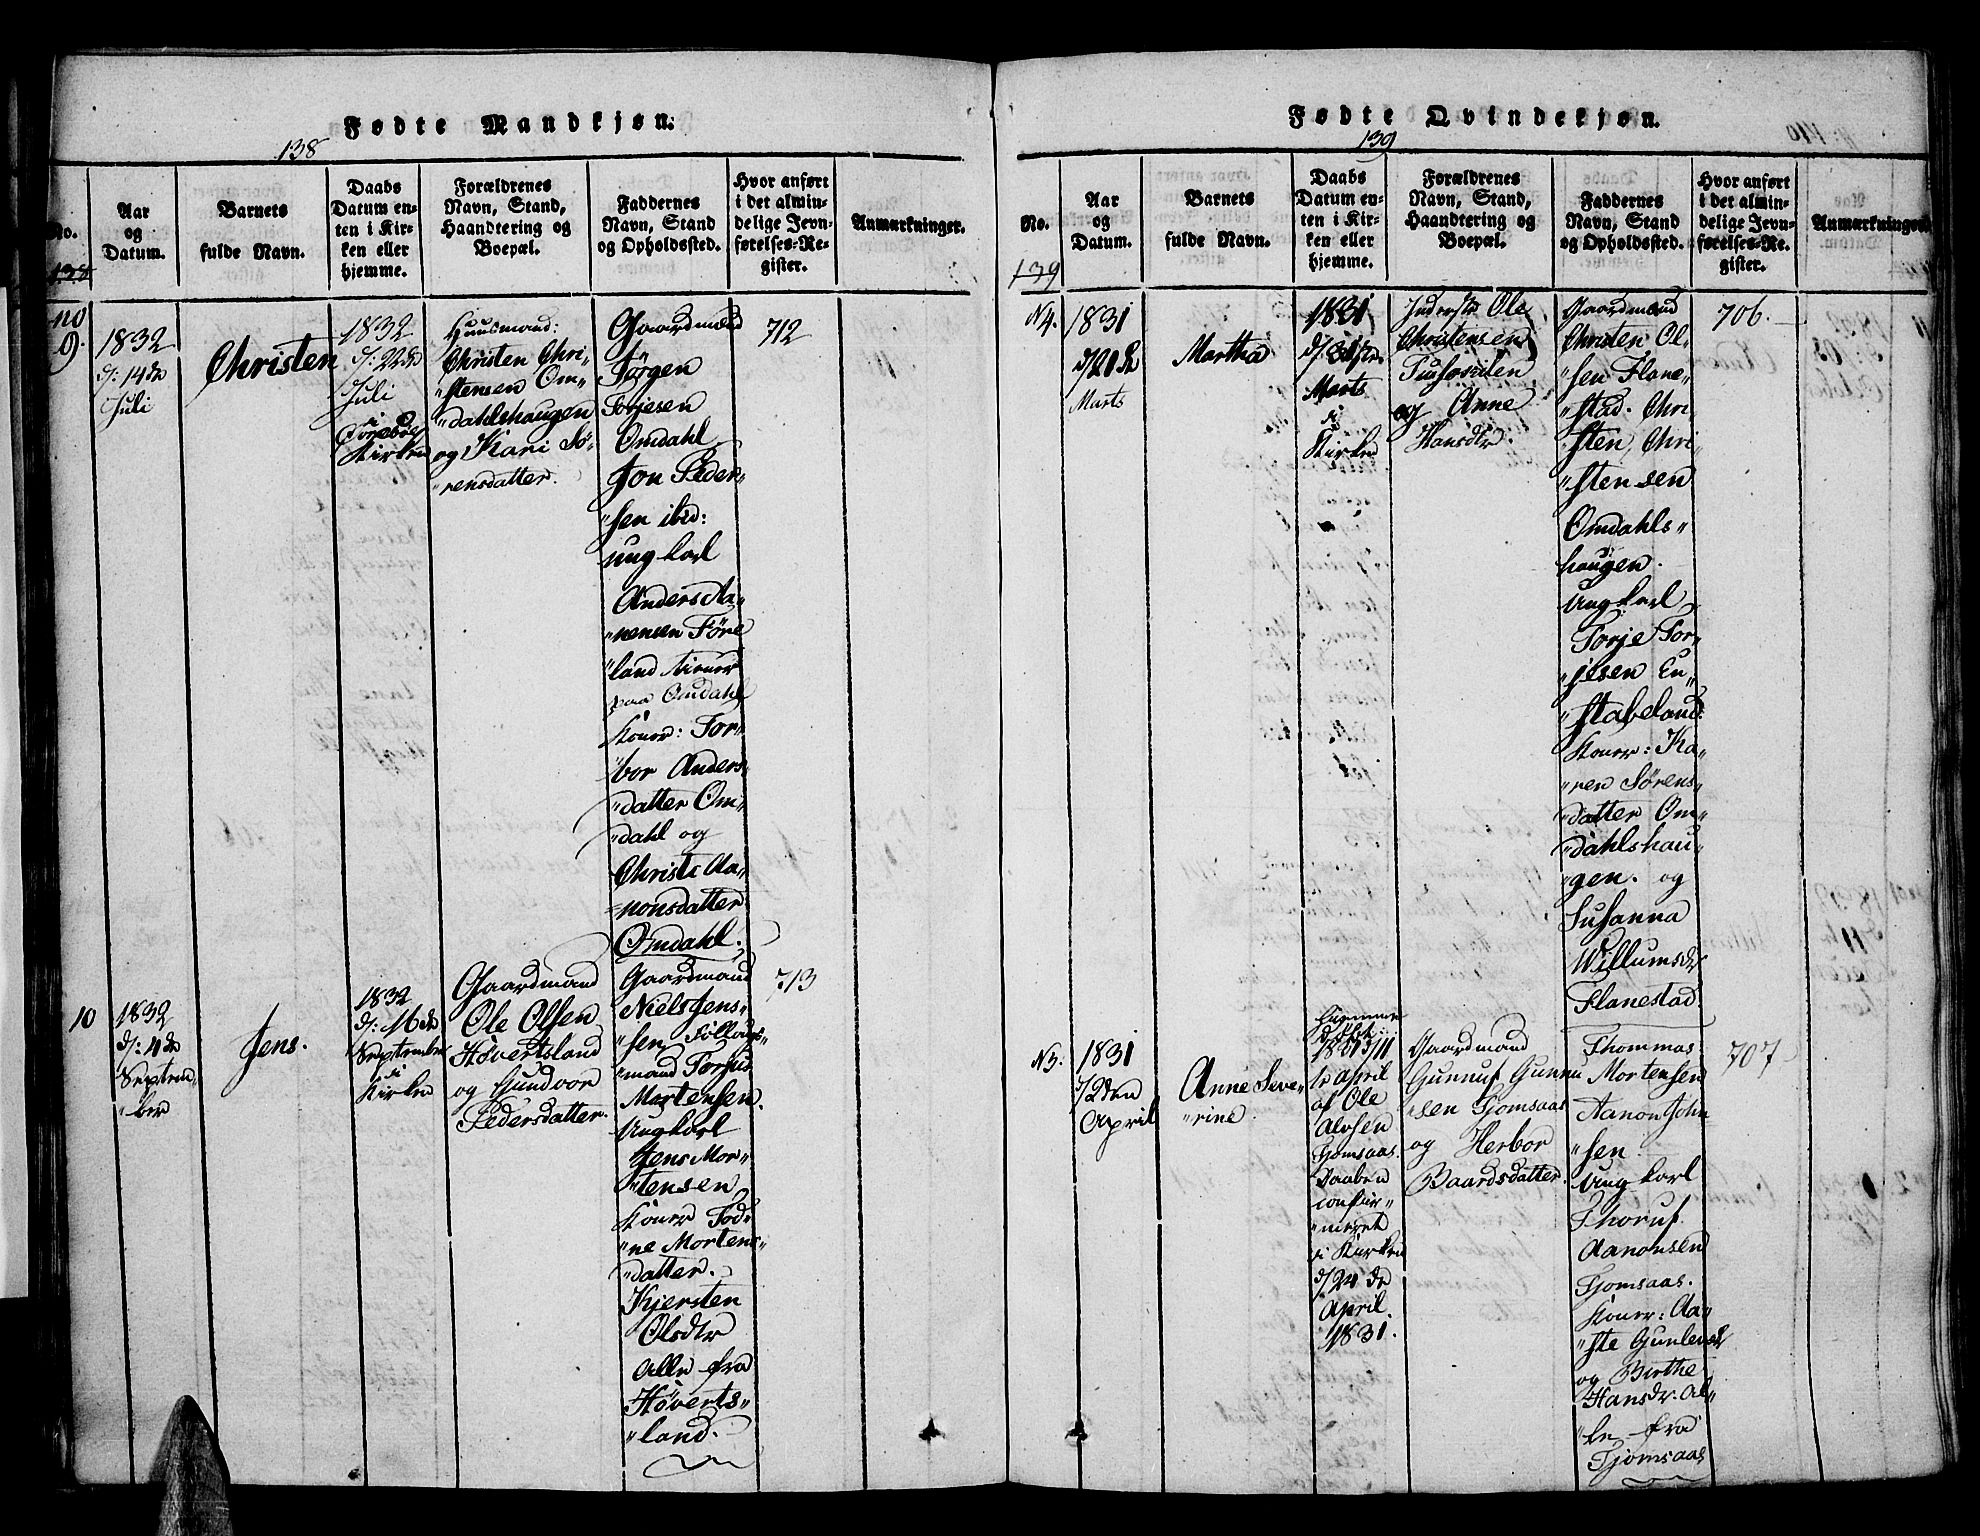 Fødte Mandkjøn.
138
No.
138
Aar
og
Datum.
Barnets
fulde Navn.
Daabs
Datum en-
ten i Kir-
ken eller
hjemme.
Forældrenes
Navn, Stand,
Haandtering og
Boepæl.
Faddernes
Navn, Stand
og Opholdssted.
Hvor anført
i det almin-
delige Jevn-
førelses-Re-
gister.
Anmærkninger.
No
9.
1832
d: 14de
Juli
Christen
1832
d: 22de
Juli
i
Kirken
Huusmand:
Christen Chri-
stensen Om-
"dahlshaugen
og Kari Sø-
"rensdatter.
Gaardmænd
Jørgen
Torjesen
Omdahl
Jon Peder-
"sen ibid:
ungkarl
Anders Aa-
"nensen Føre
"land
paa Omdahl
Koner: Tor-
"bor Anders-
"datter Om-
"dahl og
Christi Aa-
"nonsdatter
Omdahl.
712
10
1832
d: 4de
Septem-
"ber
Jens.
1832
d:
Septembr
i
Kirken
Gaardmand
Ole Olsen
Høvertsland
og Gundvor
Pedersdatter.
Gaardmand
Niels Jens-
"sen,
"mand Torjus
Mortensen.
Ungkarl
Jens Mor-
"tensen
Koner Tod-
"ne Mortens-
"datter.
Kjersten
Olsdtr
Alle fra
Høverts-
"land.
713
Fødte Qvindekjøn.
139
No.
139
Aar
og
Datum.
Barnets
fulde Navn.
Daabs
Datum en-
ten i Kir-
ken eller
hjemme.
Forældrenes
Navn, Stand,
Haandtering og
Boepæl.
Faddernes
Navn, Stand
og Opholdssted.
Hvor anført
i det almin-
delige Jevn-
førelses-Re-
gister.
Anmærkninger.
N4.
1831
d/21de
Marts
Martha
1831
Marts
i
Kirken
Inderste Ole
Christensen
og Anne
Hansdtr.
Gaardmænd
Christen Ol-
"sen Flane-
"stad. Chri-
"sten, Chri-
"stensen
Omdahls-
haugen.
Ungkarl
Torje Tor-
"jesen Eu-
"stabeland:
Koner: Ka-
"ren Sørens-
"datter Om-
"dahlshau-
"gen. og
Susanna
Willumsdtr
Flanestad.
706.
1831
d/2den
April
Anne Seve-
"rine.
Hjemme
døbt
April
af Ole
Alvsen
Tjomsaas.
Daaben
confir-
"meret
i Kirken
d/24de
April.
1831.
Gaardmand
Gunnuf Gunnu
"sen Tjomsaas
og Herbor
Baardsdatter.
Thommas
Mortensen
Aanon John
"sen.
Ungkarl
Thoruf
Aanonsen
Tjomsaas.
Koner: Aa-
"ste Gunlevsd
og Birthe
Hansdr. Al-
"le fra
Tjomsaas
707